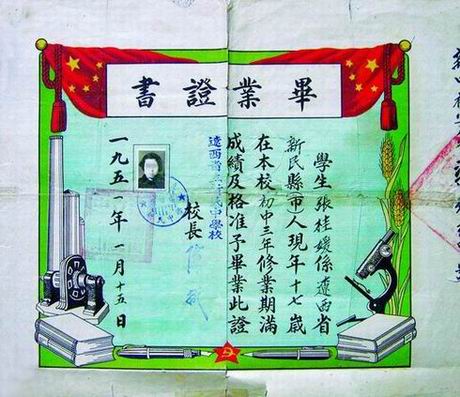 畢業證書
學生張桂媛係遼西省
新民縣(市)人現年十七歲
在本校初中三年修業期滿
成績及格准予畢業此證
遼西省民中學校
校長
一九五一年一月十五日